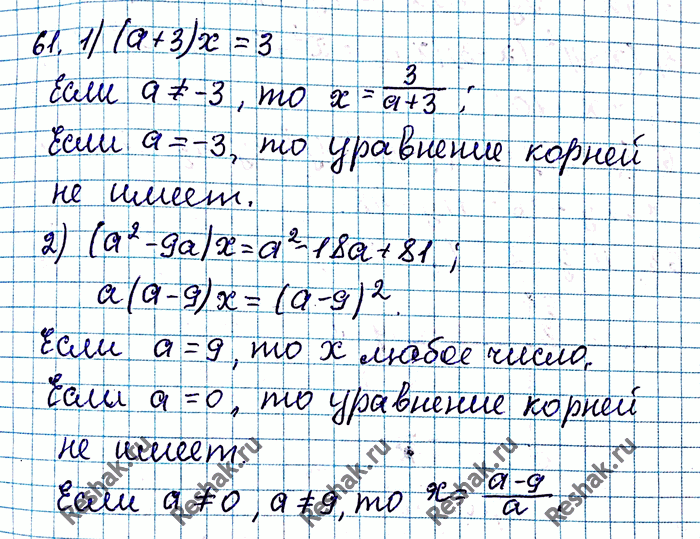 61. 1) (a+3)x = 3
Если a ≠ -3, то x = 3/(a+3);
Если a = -3, то уравнение корней
не имеет.
2) (a² - 9a)x = a² - 18a + 81;
a(a-9)x = (a-9)².
Если a = 9, то x любое число.
Если a = 0, то уравнение корней
не имеет.
Если a ≠ 0, a ≠ 9, то x = (a-9)/a.
Reshak.ru Reshak.ru Reshak.ru Reshak.ru Reshak.ru